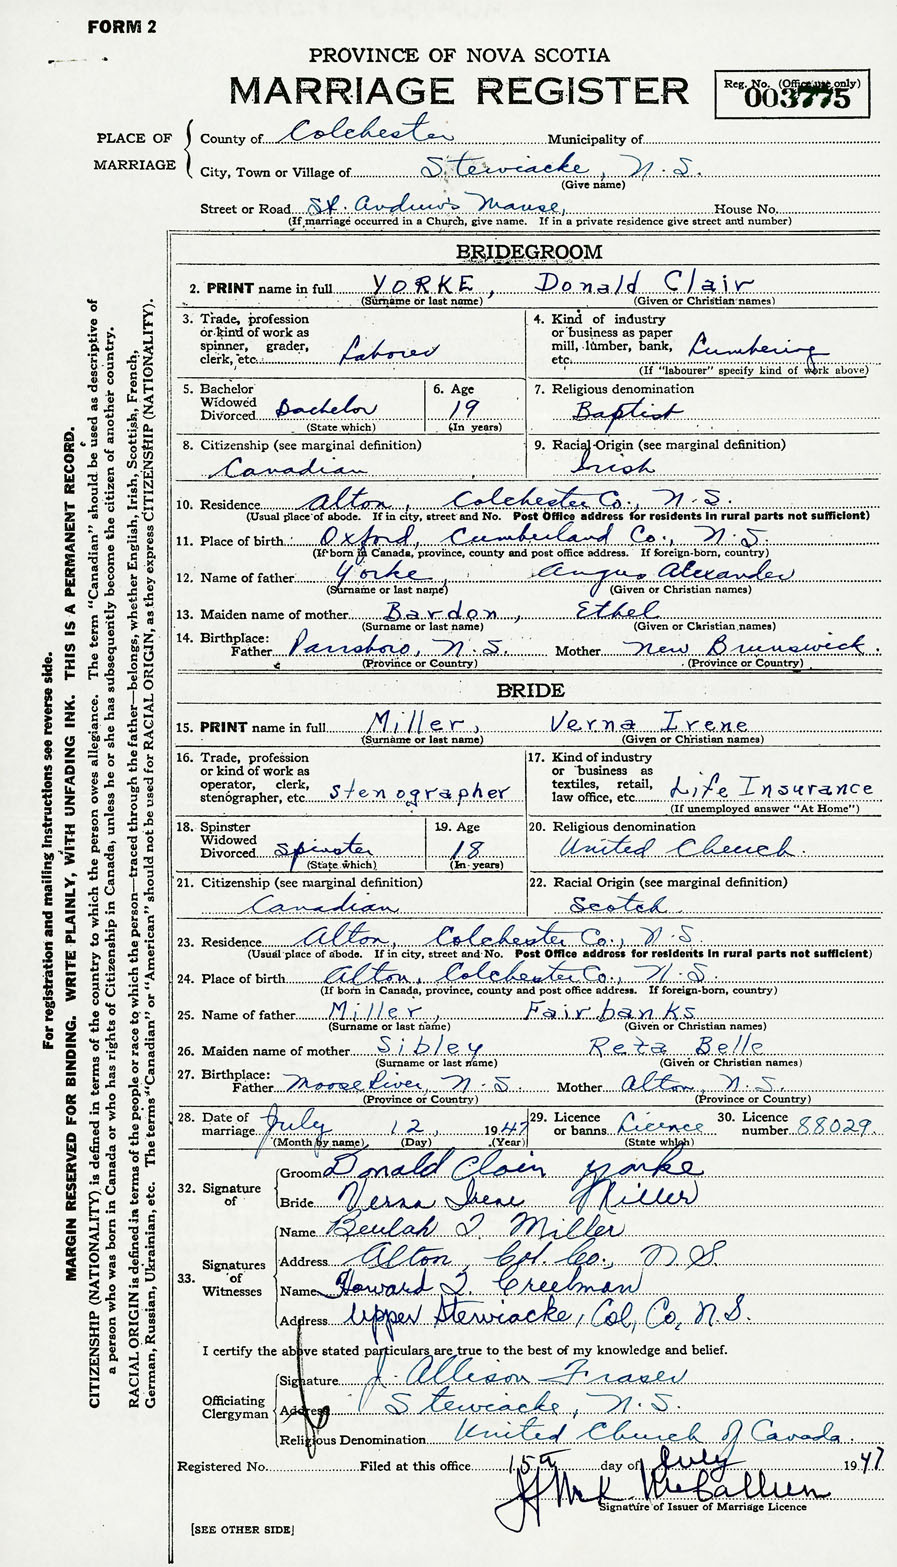 FORM 2
PROVINCE OF NOVA SCOTIA
MARRIAGE REGISTER
Reg. No. (Office use only)
003775
PLACE OF MARRIAGE
County of Colchester Municipality of
City, Town or Village of Stewiacke, N.S.
(Give name)
Street or Road St. Andrew's Manse, House No.
(If marriage occurred in a Church, give name. If in a private residence give street and number)
BRIDEGROOM
2. PRINT name in full YORKE, Donald Clair
(Surname or last name) (Given or Christian names)
3. Trade, profession or kind of work as spinner, grader, clerk, etc. Laborer
4. Kind of industry or business as paper mill, lumber, bank, etc. Lumbering
(If "labourer" specify kind of work above)
5. Bachelor Widowed Divorced Bachelor
(State which)
6. Age 19
(In years)
7. Religious denomination
Baptist
8. Citizenship (see marginal definition)
Canadian
9. Racial Origin (see marginal definition)
Irish
10. Residence Alton, Colchester Co., N.S.
(Usual place of abode. If in city, street and No. Post Office address for residents in rural parts not sufficient)
11. Place of birth Oxford, Cumberland Co., N.S.
(If born in Canada, province, county and post office address. If foreign-born, country)
12. Name of father Yorke, Angus Alexander
(Surname or last name) (Given or Christian names)
13. Maiden name of mother Bardon, Ethel
(Surname or last name) (Given or Christian names)
14. Birthplace:
Father Parrsboro, N.S. Mother New Brunswick.
(Province or Country) (Province or Country)
BRIDE
15. PRINT name in full Miller, Verna Irene
(Surname or last name) (Given or Christian names)
16. Trade, profession or kind of work as operator, clerk, stenographer, etc. Stenographer
17. Kind of industry or business as textiles, retail, law office, etc. Life Insurance
(If unemployed answer "At Home")
18. Spinster Widowed Divorced Spinster
(State which)
19. Age 18
(In years)
20. Religious denomination
United Church.
21. Citizenship (see marginal definition)
Canadian
22. Racial Origin (see marginal definition)
Scotch
23. Residence Alton, Colchester Co., N.S.
(Usual place of abode. If in city, street and No. Post Office address for residents in rural parts not sufficient)
24. Place of birth Alton, Colchester Co., N.S.
(If born in Canada, province, county and post office address. If foreign-born, country)
25. Name of father Miller, Fairbanks
(Surname or last name) (Given or Christian names)
26. Maiden name of mother Sibley Reta Belle
(Surname or last name) (Given or Christian names)
27. Birthplace:
Father Moose River, N.S. Mother Alton, N.S.
(Province or Country) (Province or Country)
28. Date of marriage July 12, 1947
(Month by name) (Day) (Year)
29. Licence or banns Licence
(State which)
30. Licence number 88029.
32. Signature of
Groom Donald Clair Yorke
Bride Verna Irene Miller
33. Signatures of Witnesses
Name Beulah I. Miller
Address Alton, Col. Co., N.S.
Name Howard T. Creelman
Address Upper Stewiacke, Col, Co, N.S.
I certify the above stated particulars are true to the best of my knowledge and belief.
Officiating Clergyman
Signature J. Allison Fraser
Address Stewiacke, N.S.
Religious Denomination United Church of Canada.
Registered No. Filed at this office 15th day of July 1947
Signature of Issuer of Marriage Licence
[SEE OTHER SIDE]
For registration and mailing instructions see reverse side.
MARGIN RESERVED FOR BINDING. WRITE PLAINLY, WITH UNFADING INK. THIS IS A PERMANENT RECORD.
CITIZENSHIP (NATIONALITY) is defined in terms of the country to which the person owes allegiance. The term "Canadian" should be used as descriptive of
a person who was born in Canada or who has rights of Citizenship in Canada, unless he or she has subsequently become the citizen of another country.
RACIAL ORIGIN is defined in terms of the people or race to which the person—traced through the father—belongs, whether English, Irish, Scottish, French,
German, Russian, Ukrainian, etc. The terms "Canadian" or "American" should not be used for RACIAL ORIGIN, as they express CITIZENSHIP (NATIONALITY).